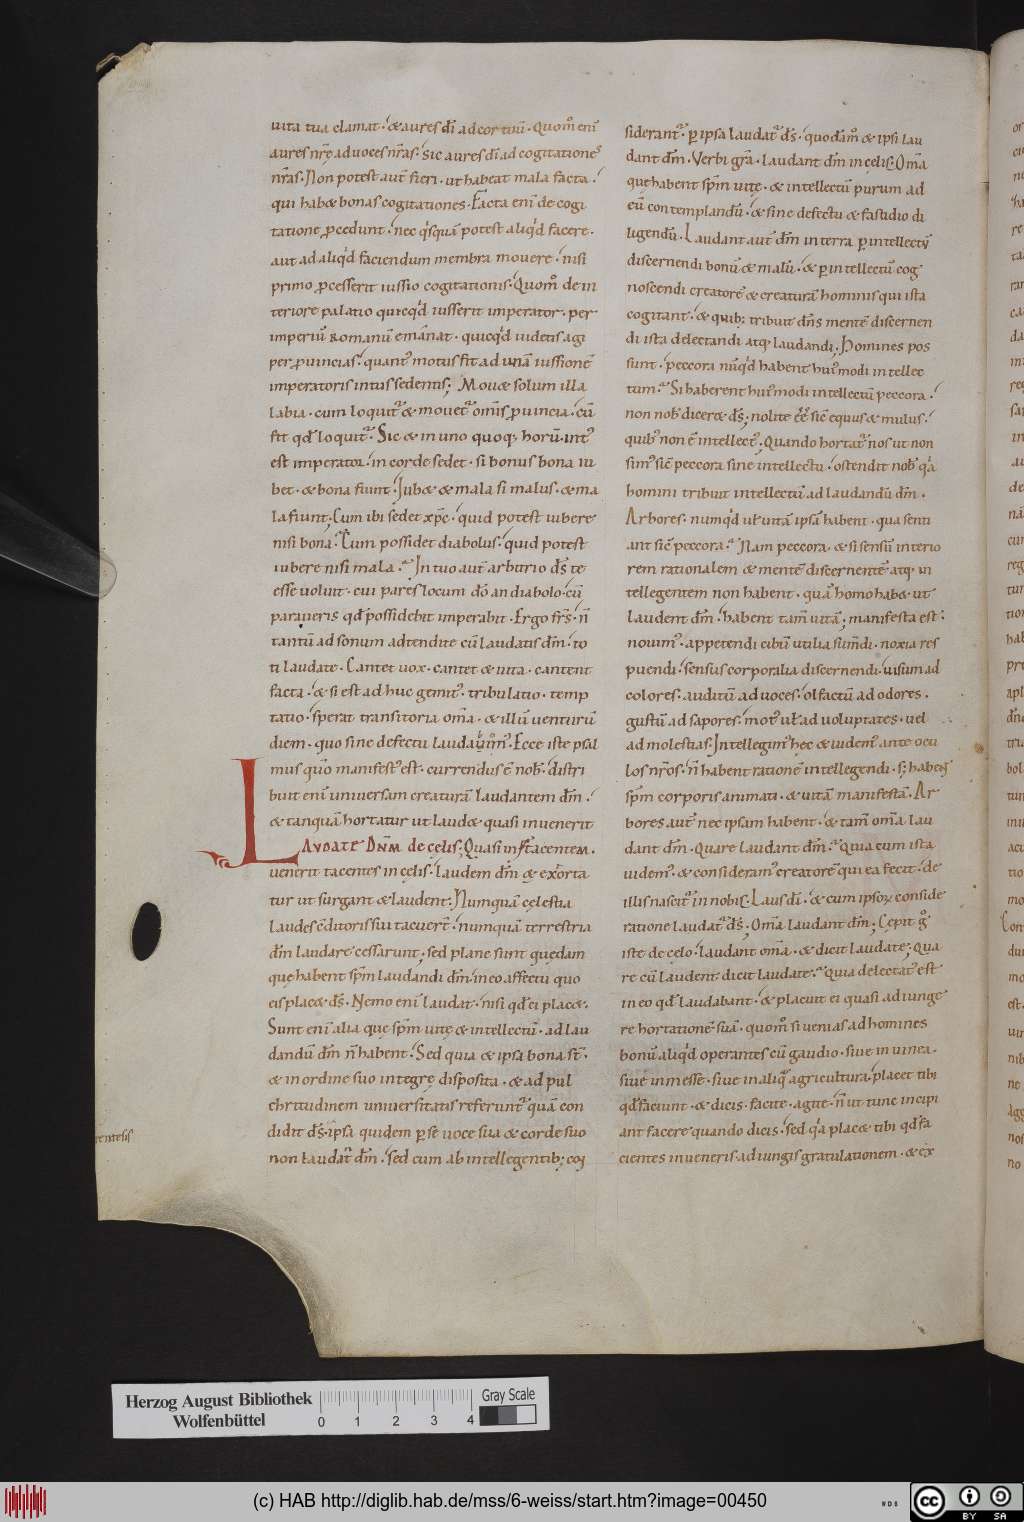 uita tua clamat. & aures dī ad cor tuū. Quom̄ enī
aures nr̄ę ad uoces nr̄as. sic aures dī ad cogitationes
nr̄as. Non potest aut̄ fieri. ut habeat mala facta.
qui hab& bonas cogitationes. Facta enī de cogi
tatione ꝓcedunt. nec q̇squā potest aliq̇d facere.
aut ad aliq̇d faciendum membra mouere. nisi
primo ꝓcesserit iussio cogitationis. Quom̄ de in
teriore palatio quicq̇d iusserit imperator. per
imperiū Romanū emānat. quicq̇d uidetis agi
per ꝓuincias. quantꝰ motus fit ad unā iussionē
imperatoris intus sedentis; Mou& solum illa
labia. cum loquit̄ & mouet̄ om̄is ꝓuincia. cū
fit qd̄ loquit̄. Sic & in uno quoq; horū. intꝰ
est imperator. in corde sedet. si bonus bona iu
bet. & bona fiunt. Iub& & mala si malus. & ma
la fiunt; Cum ibi sedet xp̄c. quid potest iubere
nisi bona. Cum possidet diabolus. quid potest
iubere nisi mala. In tuo aut̄ arbitrio dš te
esse uoluit. cui pares locum dō an diabolo. cū
paraueris qd̄ possidebit imperabit. Ergo fr̄s. n̄
tantū ad sonum adtendite cū laudatis dm̄. to
ti laudate. Cantet uox. cantet & uita. cantent
facta. & si est ad huc gemitꝰ. tribulatio. temp
tatio. sperat transitoria om̄a. & illū uenturū
diem. quo sine defectu laudauimꝰ. Ecce iste psal
mus quō manifestꝰ est. currendus ē nob̄. distri
buit enī uniuersam creaturā laudantem dm̄.
& tanquā hortatur ut laud& quasi inuenerit
LAUDATE DNM de cęlis; Quasi in st̄ tacentem.
uenerit tacentes in cęlis. laudem dm̄ & exorta
tur ut surgant & laudent. Numquā cęlestia
laudes cditoris sui tacuert̄. numquā terrestria
dm̄ laudare cessarunt. sed plane sunt quędam
quę habent spm̄ laudandi dm̄. in eo affectu quo
eis plac& dš. Nemo enī laudat. nisi qd̄ ei plac&.
Sunt enī alia quę spm̄ uitę & intellectū. ad lau
dandū dm̄ n̄ habent. Sed quia & ipsa bona st̄.
& in ordine suo integrę disposita. & ad pul
chritudinem uniuersitatis referunt̄ quā con
didit dš. ipsa quidem ꝑ se uoce sua & corde suo
non laudat̄ dm̄. sed cum ab intellegentib; con
siderant̄. ꝑ ipsa laudat̄ dš. quodāmo & ipsi lau
dant dm̄. Verbi gr̄a. laudant dm̄ in cęlis. Om̄a
quę habent spm̄ uitę. & intellectū purum ad
eū contemplandū. & sine defectu & fastidio di
ligendū. Laudant aut̄ dm̄ in terra ꝑ intellectū
discernendi bonū & malū. & ꝑ intellectū cog
noscendi creatorē & creaturā hominis qui ista
cogitant. & quib; tribuit dn̄s mentē discernen
di ista delectandi atq; laudandi; Homines pos
sunt. peccora nūq̇d habent huiꝰmodi intellec
tum. Si haberent huiꝰmodi intellectū peccora.
non nob̄ dicer& dš; nolite ēē sic̄ equus & mulus.
quibꝰ non ē intellectꝰ; Quando hortat̄ nos ut non
simꝰ sic̄ peccora sine intellectu. ostendit nob̄ q̇a
homini tribuit intellectū ad laudandū dm̄.
Arbores. numq̇d uł uitā ipsā habent. qua senti
ant sic̄ peccora. Nam peccora. & si sensū interio
rem rationalem & mentē discernentē. atq; in
tellegentem non habent. quā homo hab& ut
laudent dm̄. habent tam̄ uitā; manifesta est.
nouimꝰ. appetendi cibū utilia sumdi. noxia res
puendi. sensus corporalia discernendi. uisum ad
colores. auditū ad uoces. olfactū ad odores.
gustū ad sapores. motꝰ uł ad uoluptates. uel
ad molestias. Intellegimꝰ hęc & uidemꝰ ante ocu
los nr̄os. n̄ habent rationē intellegendi. s; habent
spm̄ corporis animati. & uitā manifestā. Ar
bores aut̄ nec ipsam habent. & tam̄ om̄a lau
dant dm̄. Quare laudant dm̄. Quia cum ista
uidemꝰ. & consideramꝰ creatorē qui ea fecit. de
illis nascit̄ in nobis. Laus dī. & cum ipsoꝝ conside
ratione laudat̄ dš. Om̄a laudant dm̄; Cępit g̊
iste de cęlo. laudant om̄a. & dicit laudate; Qua
re cū laudent dicit laudate. Quia delectatꝰ est
in eo qd̄ laudabant. & placuit ei quasi adiunge
re hortationē suā. quom̄ si uenias ad homines
bonū aliq̇d operantes cū gaudio. siue in uinea.
siue in messe. siue in aliq̇ agricultura. placet tibi
qd̄ faciunt. & dicis. facite. agite. n̄ ut tunc incipi
ant facere quando dicis. sed q̇a plac& tibi qd̄ fa
cientes inueneris. adiungis gratulationem. & ex
Herzog August Bibliothek
Wolfenbüttel
0 1 2 3 4
Gray Scale
(c) HAB http://diglib.hab.de/mss/6-weiss/start.htm?image=00450
cc BY SA